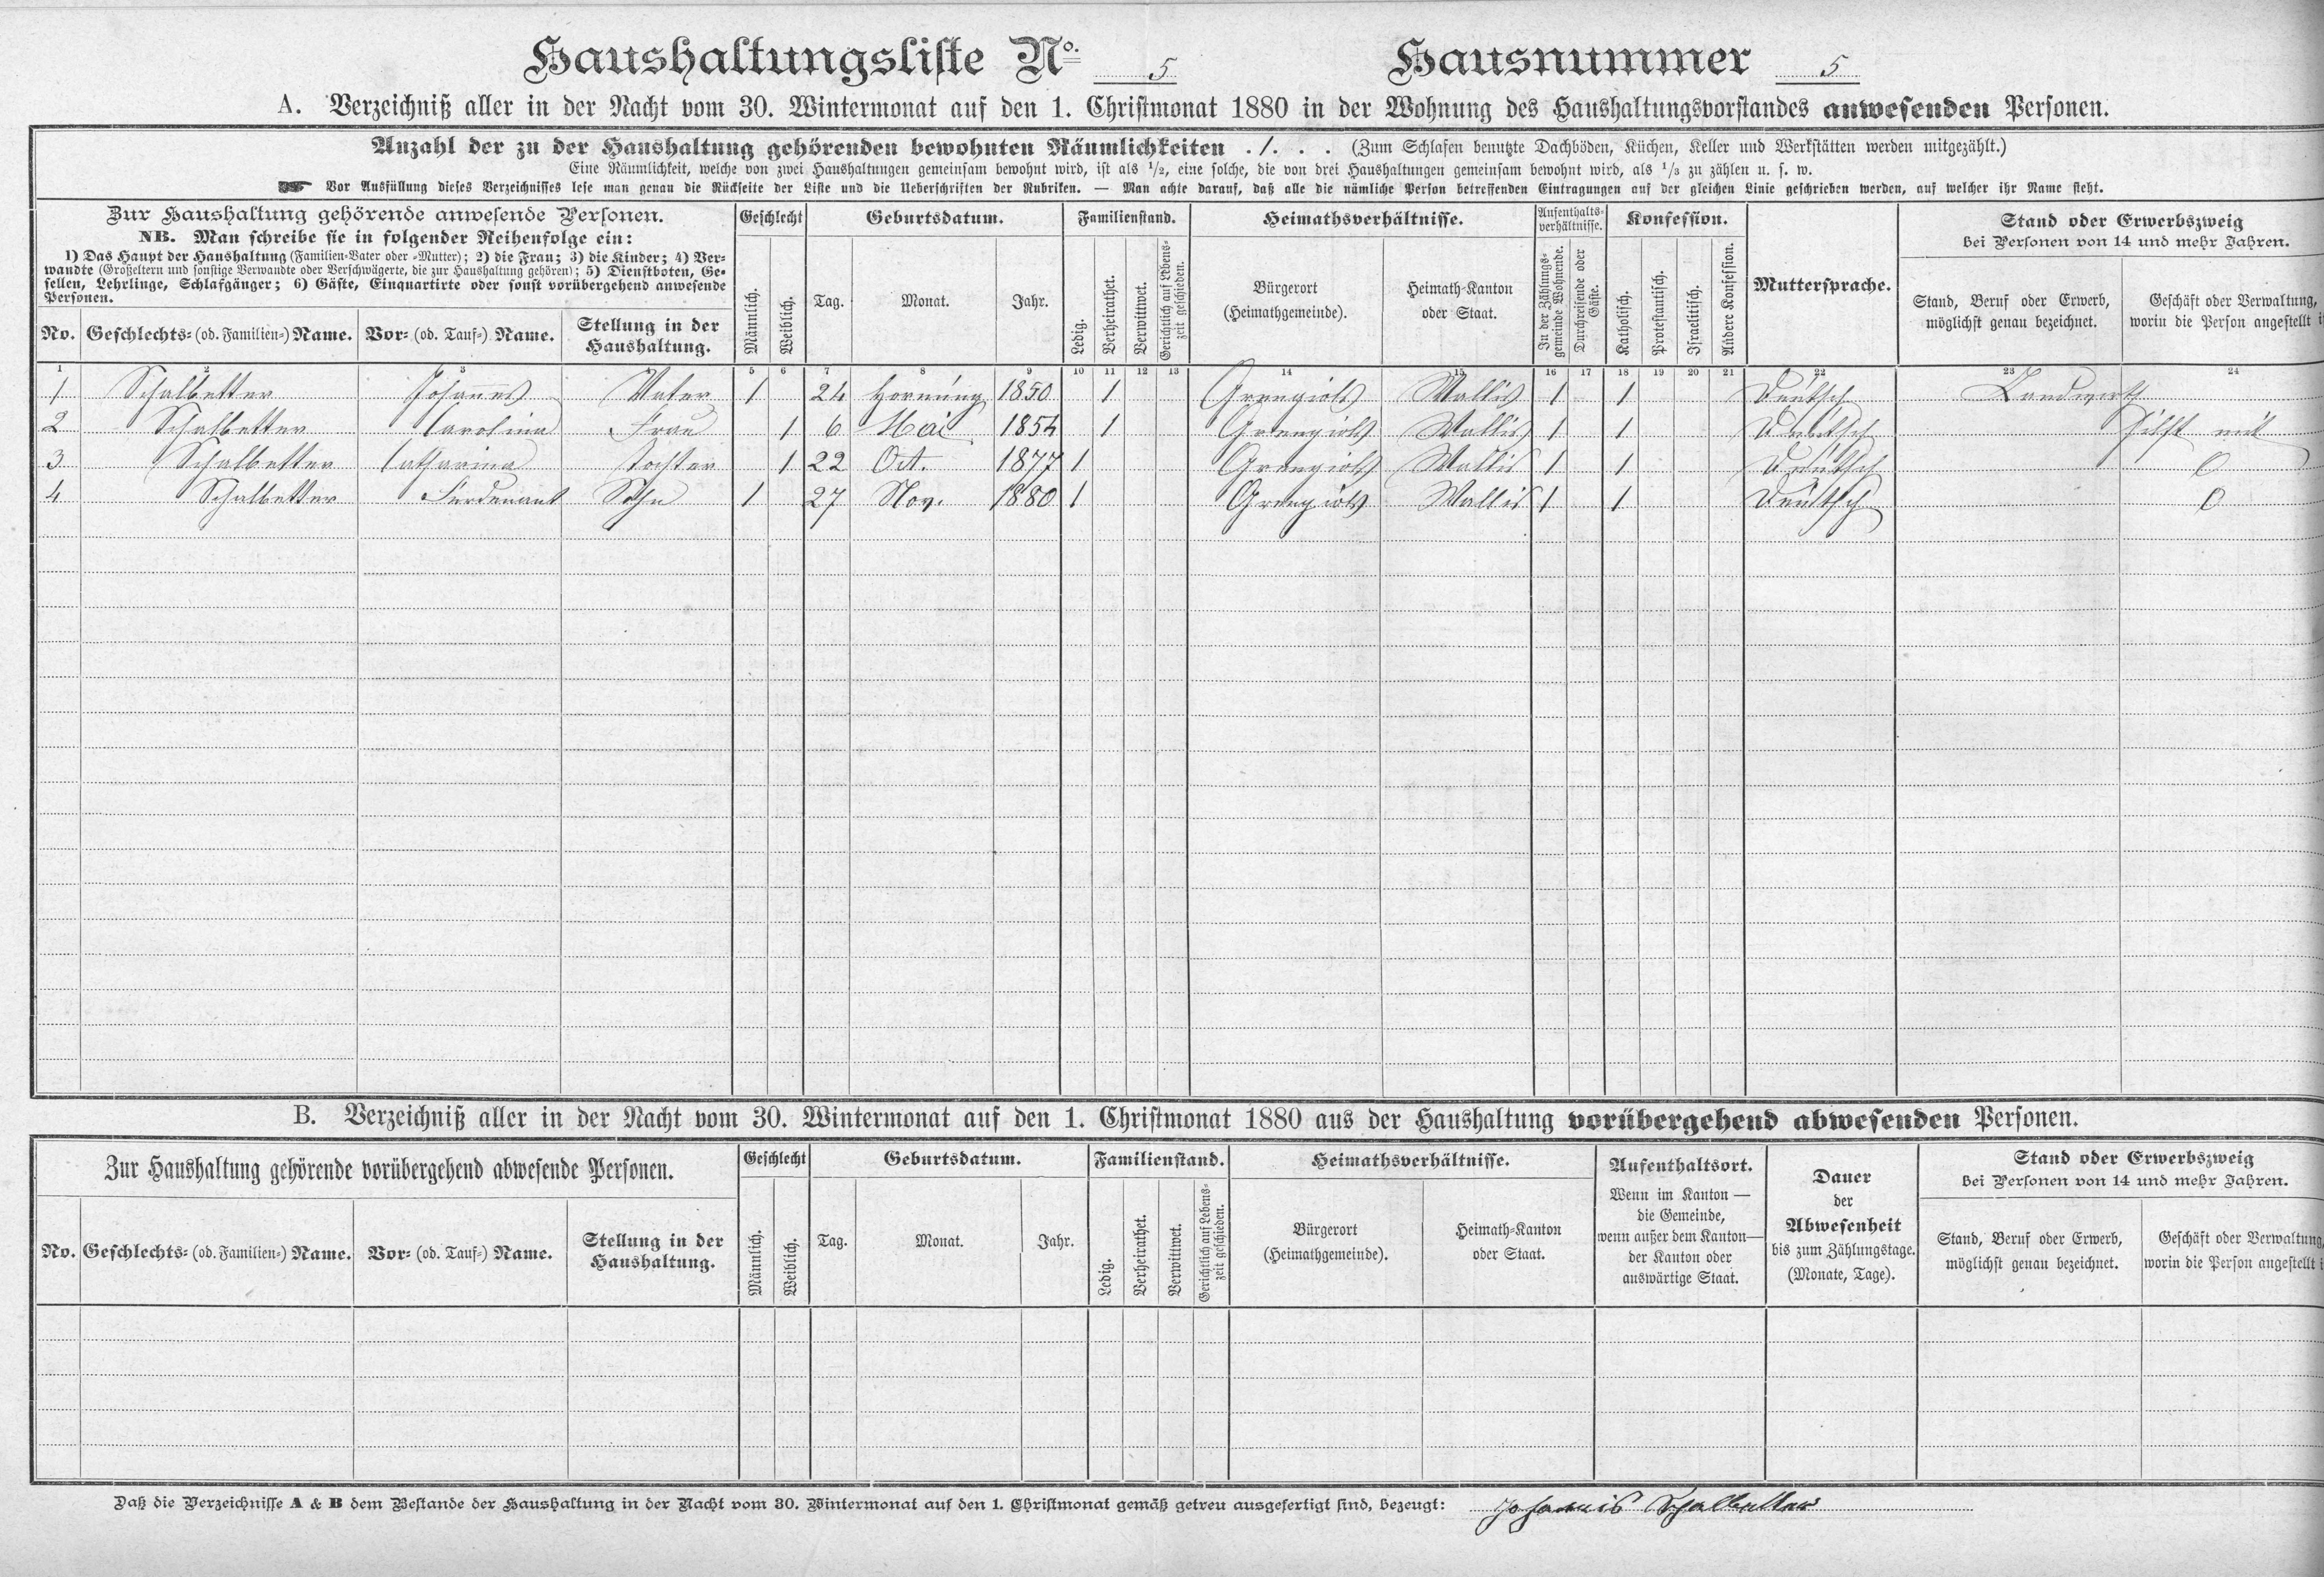 Haushaltungsliste No. 5 Hausnummer 5
A. Verzeichniß aller in der Nacht vom 30. Wintermonat auf den 1. Christmonat 1880 in der Wohnung des Haushaltungsvorstandes anwesenden Personen.
Anzahl der zu der Haushaltung gehörenden bewohnten Räumlichkeiten . 1. . . (Zum Schlafen benutzte Dachböden, Küchen, Keller und Werkstätten werden mitgezählt.)
Eine Räumlichkeit, welche von zwei Haushaltungen gemeinsam bewohnt wird, ist als 1/2, eine solche, die von drei Haushaltungen gemeinsam bewohnt wird, als 1/3 zu zählen u. s. w.
Vor Ausfüllung dieses Verzeichnisses lese man genau die Rückseite der Liste und die Ueberschriften der Rubriken. — Man achte darauf, daß alle die nämliche Person betreffenden Eintragungen auf der gleichen Linie geschrieben werden, auf welcher ihr Name steht.
Zur Haushaltung gehörende anwesende Personen.
NB. Man schreibe sie in folgender Reihenfolge ein:
1) Das Haupt der Haushaltung (Familien-Vater oder -Mutter); 2) die Frau; 3) die Kinder; 4) Ver-
wandte (Großeltern und sonstige Verwandte oder Verschwägerte, die zur Haushaltung gehören); 5) Dienstboten, Ge-
sellen, Lehrlinge, Schlafgänger; 6) Gäste, Einquartirte oder sonst vorübergehend anwesende
Personen.
No. Geschlechts- (od. Familien-) Name. Vor- (od. Tauf-) Name. Stellung in der
Haushaltung.
Geschlecht
Männlich. Weiblich.
Geburtsdatum.
Tag. Monat. Jahr.
Familienstand.
Ledig. Verheirathet. Verwittwet. Gerichtlich auf Lebens-
zeit geschieden.
Heimathsverhältnisse.
Bürgerort
(Heimathgemeinde).
Heimath-Kanton
oder Staat.
Aufenthalts-
verhältnisse.
In der Zählungs-
gemeinde Wohnende.
Durchreisende oder
Gäste.
Konfession.
Katholisch. Protestantisch. Israelitisch. Andere Konfession.
Muttersprache.
Stand oder Erwerbszweig
bei Personen von 14 und mehr Jahren.
Stand, Beruf oder Erwerb,
möglichst genau bezeichnet.
Geschäft oder Verwaltung,
worin die Person angestellt i
1 2 3 4 5 6 7 8 9 10 11 12 13 14 15 16 17 18 19 20 21 22 23 24
1 Schalbetter Johannes Vater 1 24 Hornung 1850 1 Grengiols Wallis 1 1 Deutsch Landwirth
2 Schalbetter Carolina Frau 1 6 Mai 1854 1 Grengiols Wallis 1 1 Deutsch hilft mit
3 Schalbetter Catharina Tochter 1 22 Oct. 1877 1 Grengiols Wallis 1 1 Deutsch 0
4 Schalbetter Ferdenant Sohn 1 27 Nov. 1880 1 Grengiols Wallis 1 1 Deutsch 0
B. Verzeichniß aller in der Nacht vom 30. Wintermonat auf den 1. Christmonat 1880 aus der Haushaltung vorübergehend abwesenden Personen.
Zur Haushaltung gehörende vorübergehend abwesende Personen.
No. Geschlechts- (od. Familien-) Name. Vor- (od. Tauf-) Name. Stellung in der
Haushaltung.
Geschlecht
Männlich. Weiblich.
Geburtsdatum.
Tag. Monat. Jahr.
Familienstand.
Ledig. Verheirathet. Verwittwet. Gerichtlich auf Lebens-
zeit geschieden.
Heimathsverhältnisse.
Bürgerort
(Heimathgemeinde).
Heimath-Kanton
oder Staat.
Aufenthaltsort.
Wenn im Kanton —
die Gemeinde,
wenn außer dem Kanton —
der Kanton oder
auswärtige Staat.
Dauer
der
Abwesenheit
bis zum Zählungstage.
(Monate, Tage).
Stand oder Erwerbszweig
bei Personen von 14 und mehr Jahren.
Stand, Beruf oder Erwerb,
möglichst genau bezeichnet.
Geschäft oder Verwaltung,
worin die Person angestellt i
Daß die Verzeichnisse A & B dem Bestande der Haushaltung in der Nacht vom 30. Wintermonat auf den 1. Christmonat gemäß getreu ausgefertigt sind, bezeugt: Johannis Schalbetter